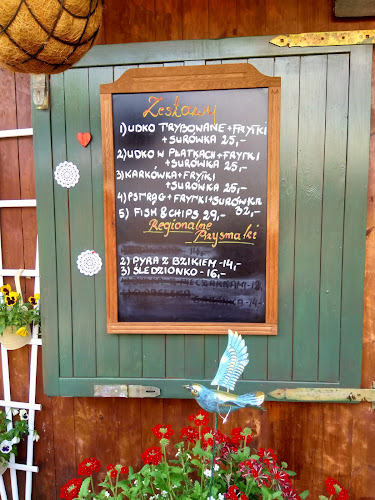 Zestawy
1) UDKO TRYBOWANE + FRYTKI
+ SURÓWKA 25,-
2) UDKO W PŁATKACH + FRYTKI
+ SURÓWKA 25,-
3) KARKÓWKA + FRYTKI
+ SURÓWKA 25,-
4) PSTRĄG + FRYTKI + SURÓWKA
32,-
5) FISH & CHIPS 29,-
Regionalne
Przysmaki
2) PYRA Z BZIKIEM - 14,-
3) ŚLEDZIONKO - 16,-